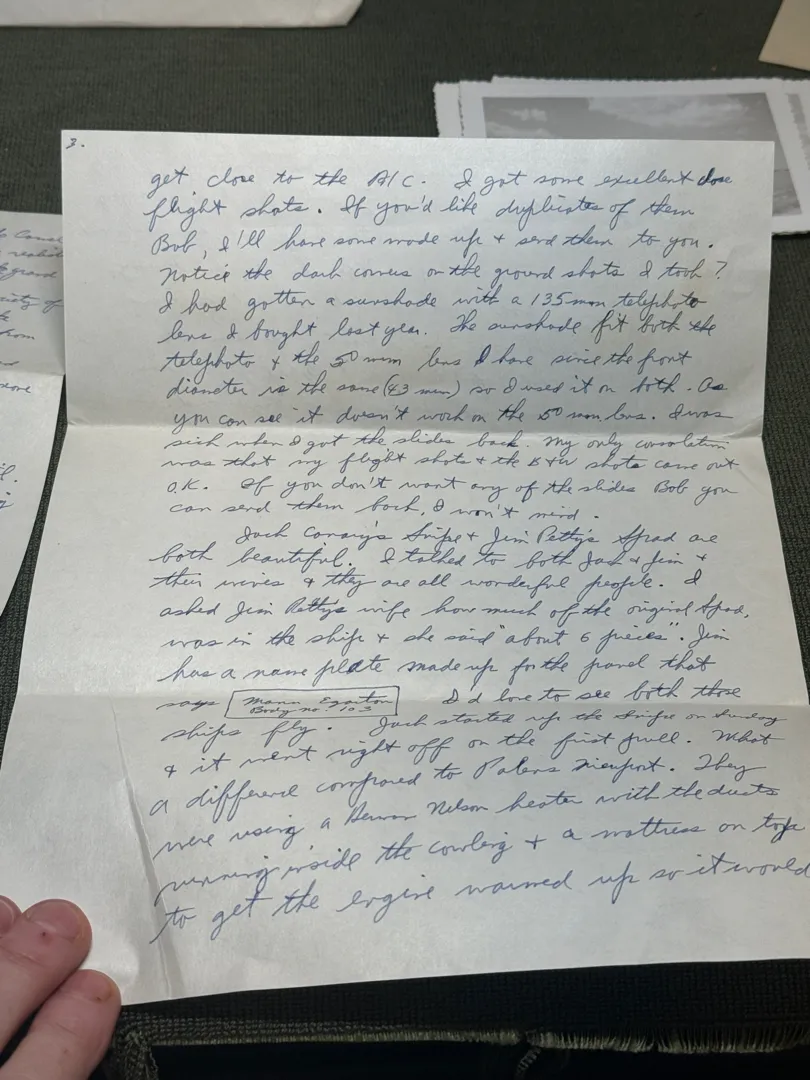 3.
get close to the A/C. I got some excellent close
flight shots. If you'd like duplicates of them
Bob, I'll have some made up + send them to you.
Notice the dark corners on the ground shots I took?
I had gotten a sunshade with a 135 mm telephoto
lens I bought last year. The sunshade fit both the
telephoto + the 50 mm lens I have since the front
diameter is the same (43 mm) so I used it on both. As
you can see it doesn't work on the 50 mm lens. I was
sick when I got the slides back. My only consolation
was that my flight shots + the B+W shots came out
O.K. If you don't want any of the slides Bob you
can send them back, I won't mind.
Jack Canary's Snipe + Jim Petty's Spad are
both beautiful. I talked to both Jack + Jim +
their wives + they are all wonderful people. I
asked Jim Petty's wife how much of the original Spad,
was in the ship + she said "about 6 pieces". Jim
has a name plate made up for the panel that
says Mann Egerton
Body no. 103 I'd love to see both those
ships fly. Jack started up the Snipe on Sunday
+ it went right off on the first pull. What
a difference compared to Palens Nieuport. They
were using a Herman Nelson heater with the ducts
running inside the cowling + a mattress on top
to get the engine warmed up so it would